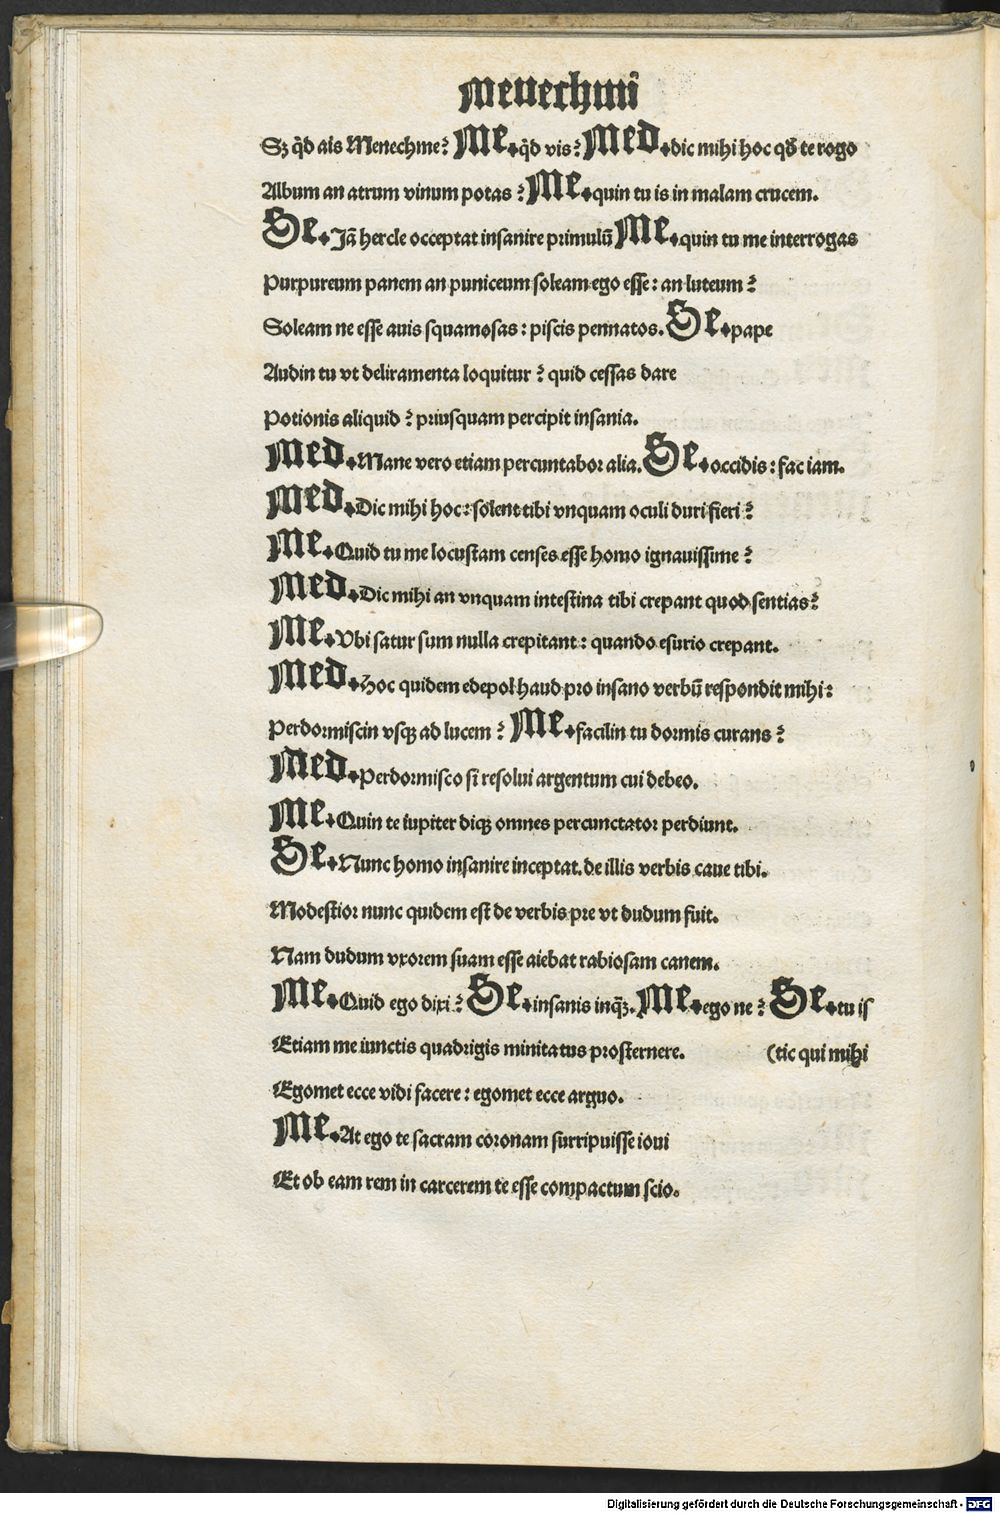 Meuechmi
Sꝫ qͥd ais Menechme? Me. qͥd vis? Med. dic mihi hoc qđ te rogo
Album an atrum vinum potas? Me. quin tu is in malam crucem.
Se. Jã hercle occeptat insanire primulũ Me. quin tu me interrogas
Purpureum panem an puniceum soleam ego esse: an luteum?
Soleam ne esse auis squamosas: piscis pennatos. Se. pape
Audin tu vt deliramenta loquitur? quid cessas dare
Potionis aliquid? priusquam percipit insania.
Med. Mane vero etiam percuntabor alia. Se. occidis: fac iam.
Med. Dic mihi hoc: solent tibi vnquam oculi duri fieri?
Me. Quid tu me locustam censes esse homo ignauissime?
Med. Dic mihi an vnquam intestina tibi crepant quod sentias?
Me. Vbi satur sum nulla crepitant: quando esurio crepant.
Med. Hoc quidem edepol haud pro insano verbũ respondit mihi:
Perdormiscin vsqꝫ ad lucem? Me. facilin tu dormis curans?
Med. Perdormisco si resolui argentum cui debeo.
Me. Quin te iupiter diqꝫ omnes percunctator perdiunt.
Se. Nunc homo insanire inceptat. de illis verbis caue tibi.
Modestior nunc quidem est de verbis pre vt dudum fuit.
Nam dudum vxorem suam esse aiebat rabiosam canem.
Me. Quid ego dixi? Se. insanis inq̃ꝫ. Me. ego ne? Se. tu is
Etiam me iunctis quadrigis minitatus prosternere. (tic qui mihi
Egomet ecce vidi facere: egomet ecce arguo.
Me. At ego te sacram coronam surripuisse ioui
Et ob eam rem in carcerem te esse compactum scio.
Digitalisierung gefördert durch die Deutsche Forschungsgemeinschaft - DFG